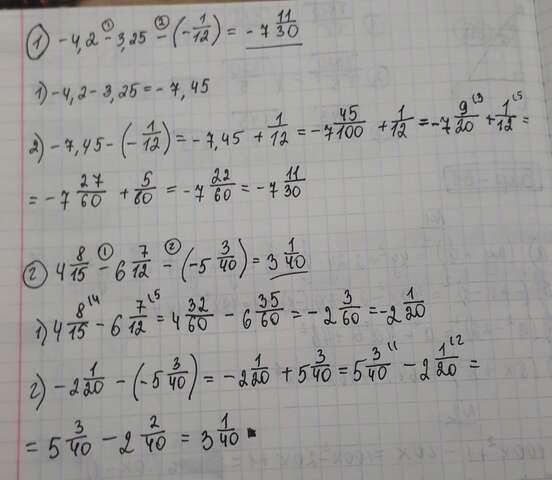 1) -4,2 - 3,25 - (-1/12) = -7 11/30
1) -4,2 - 3,25 = -7,45
2) -7,45 - (-1/12) = -7,45 + 1/12 = -7 45/100 + 1/12 = -7 9/20 (3 + 1/12 (5 =
= -7 27/60 + 5/60 = -7 22/60 = -7 11/30
2) 4 8/15 - 6 7/12 - (-5 3/40) = 3 1/40
1) 4 8/15 (4 - 6 7/12 (5 = 4 32/60 - 6 35/60 = -2 3/60 = -2 1/20
2) -2 1/20 - (-5 3/40) = -2 1/20 + 5 3/40 = 5 3/40 (1 - 2 1/20 (2 =
= 5 3/40 - 2 2/40 = 3 1/40.